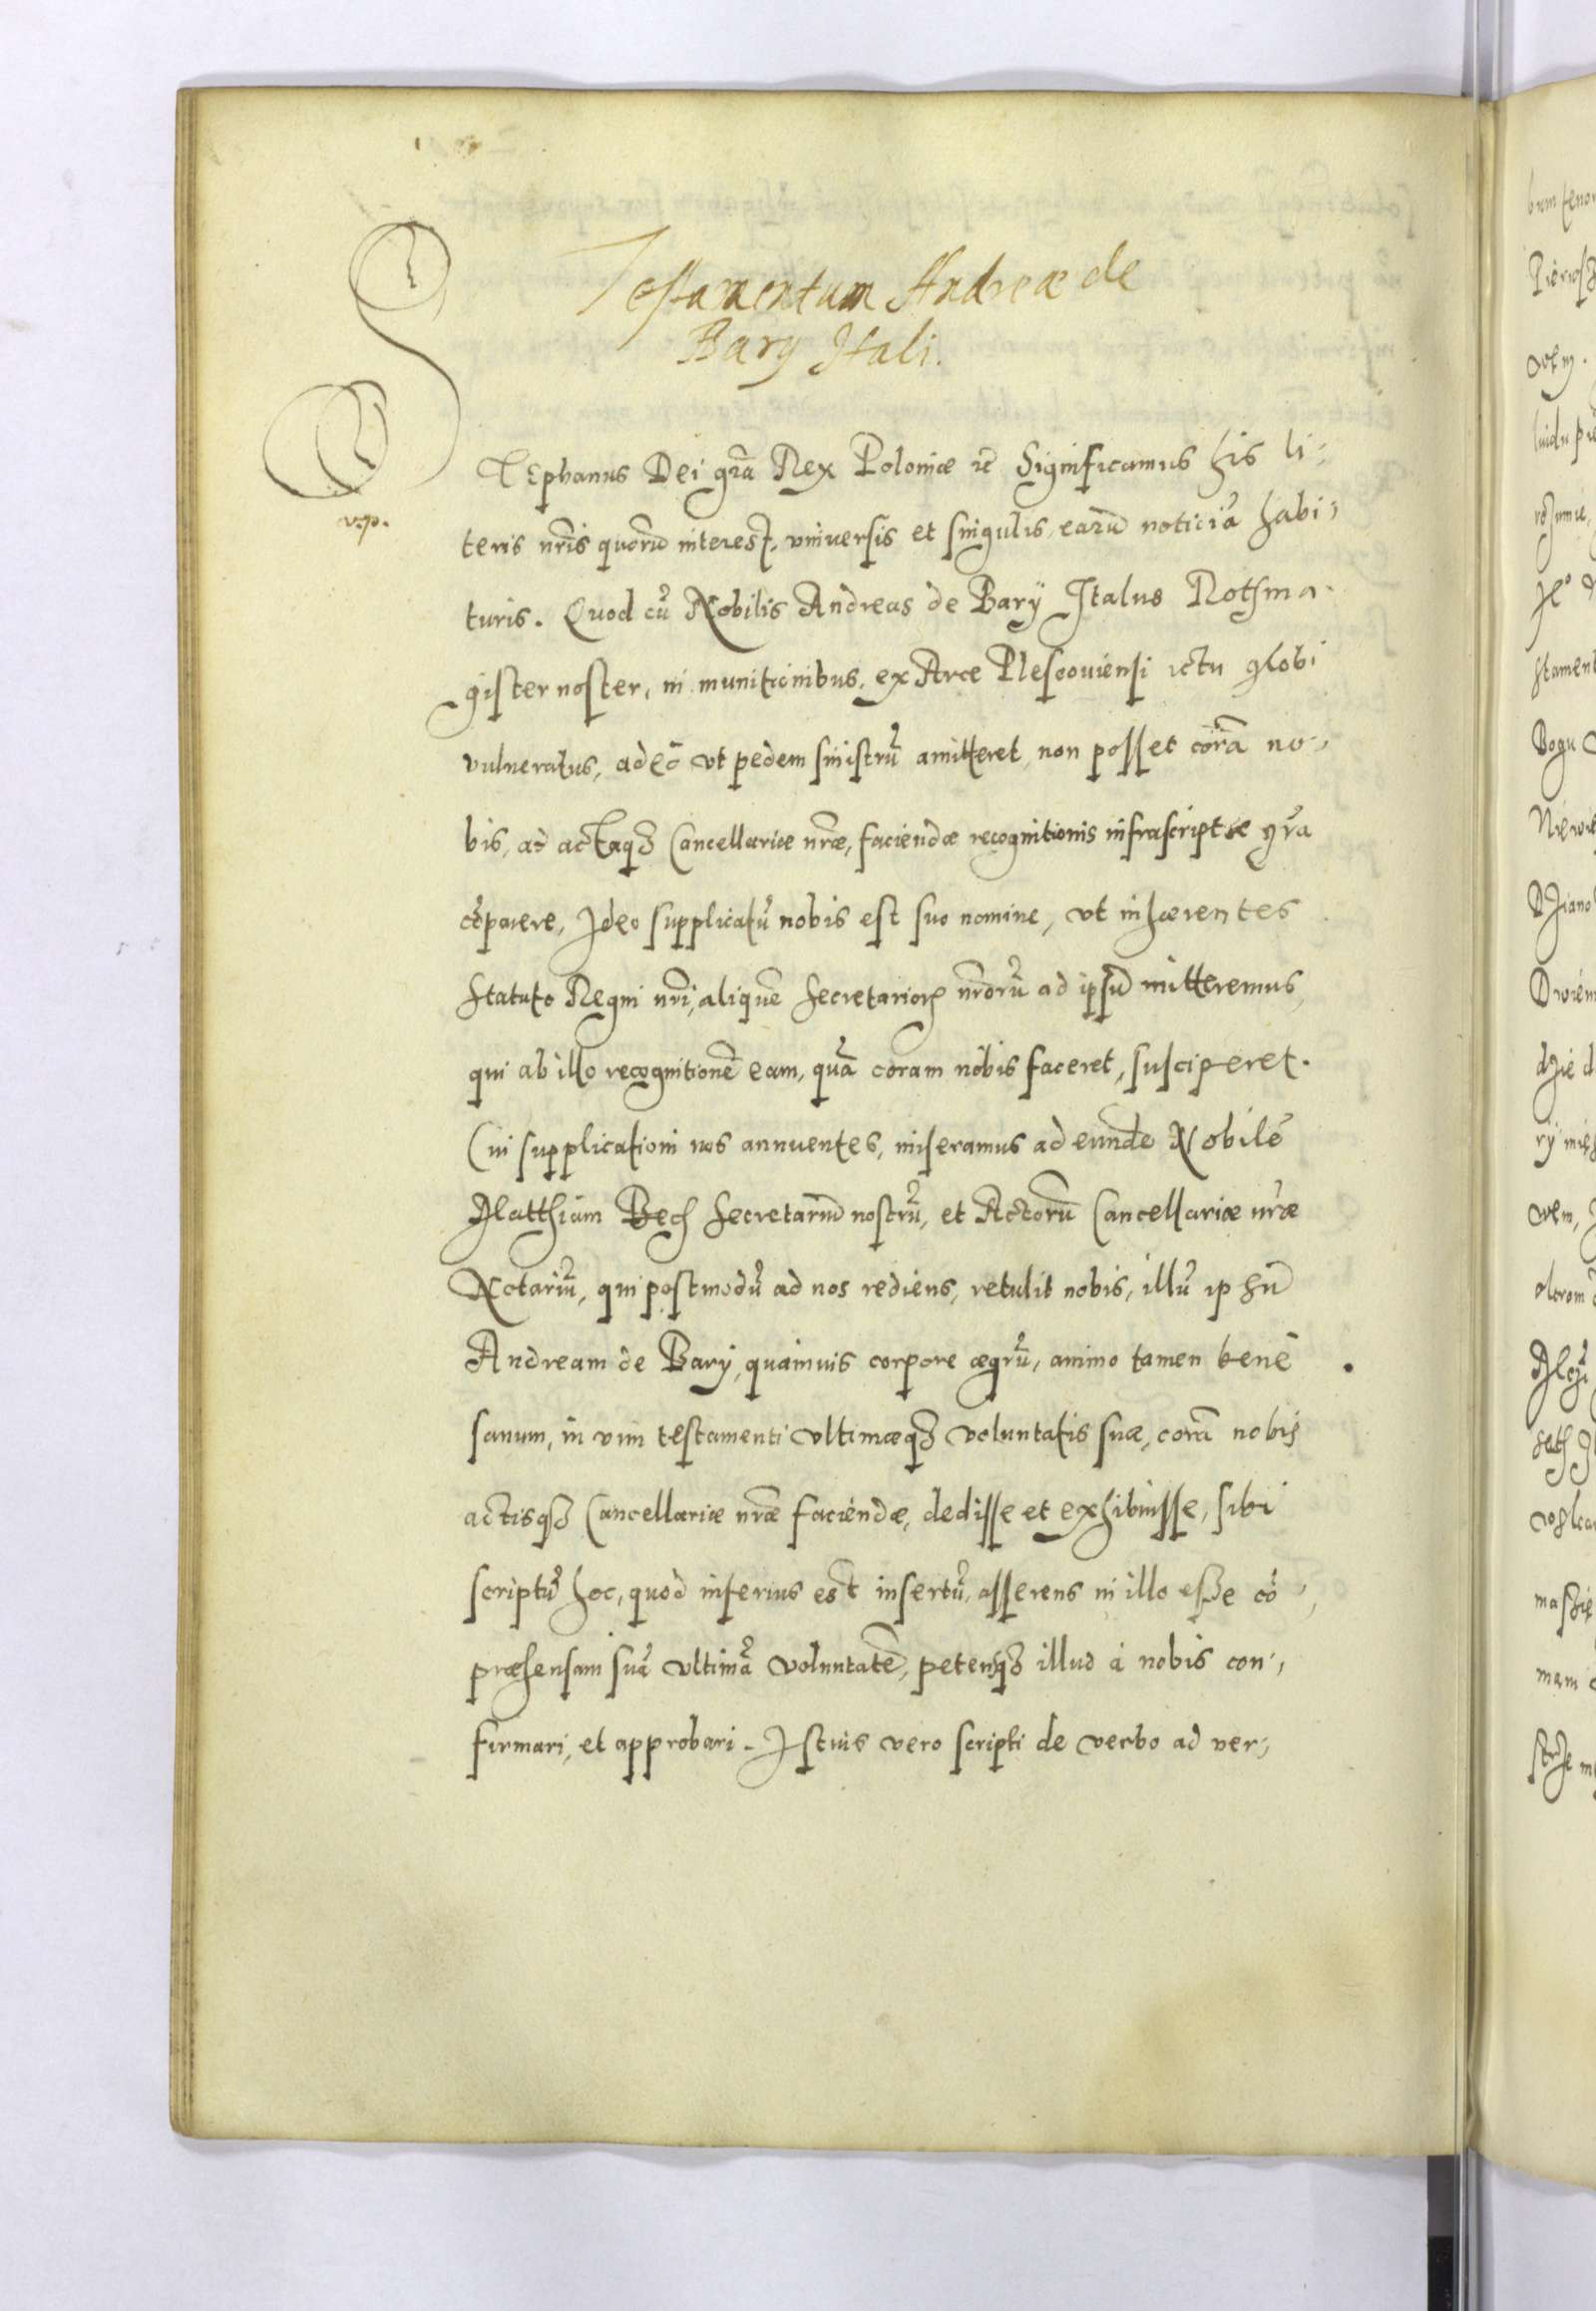 Testamentum Andreæ de
Bary Itali.
STEphanus Dei gr̃a Rex Poloniæ ꝛc̃ Significamus his li⸗
teris nr̃is quorũ interest, vniuersis et singulis, earũ noticiã habi⸗
turis. Quod cũ Nobilis Andreas de Barÿ Italus Rothma⸗
gister noster, in munitionibus, ex Arce Plescouiensi ictu globi
vulneratus, adeò vt pedem sinistrũ amitteret, non posset corã no⸗
bis, ac actaqꝫ Cancellariæ nr̃æ, faciendæ recognitionis infrascriptæ gr̃a
cõparere, Ideo supplicatũ nobis est suo nomine, vt inhærentes
Statuto Regni nr̃i, aliquẽ Secretarioꝝ nr̃orũ ad ipsũ mitteremus,
qui ab illo recognitionẽ eam, quã coram nobis faceret, susciperet.
Cui supplicationi nos annuentes, miseramus ad eundẽ Nobilẽ
Matthiam Bech Secretariũ nostrũ, et Actorũ Cancellariæ nr̃æ
Notariũ, qui postmodũ ad nos rediens, retulit nobis, illũ ipsũ
Andream de Barÿ, quamuis corpore ægrũ, animo tamen benè
sanum, in vim testamenti vltimæqꝫ voluntatis suæ, corã nobis
actisqꝫ Cancellariæ nr̃æ faciendæ, dedisse et exhibuisse, sibi
scriptũ hoc, quod inferius est insertũ, asserens in illo esse cõ⸗
præhensam suã vltimã voluntatẽ, petensqꝫ illud à nobis con⸗
firmari, et approbari. Istius vero scripti de verbo ad ver⸗